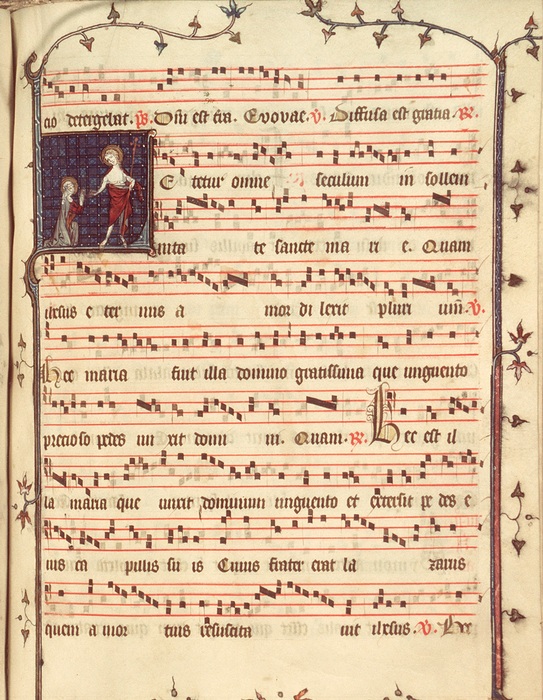 cio detergebat. ps. Dñi est t̃ra. Evovae. V. Diffusa est gratia. R.
E tetur omne seculum in sollem
nita te sancte ma ri e. Quam
ihesus e ter nus a mor di lexit pluri mũ. V.
Hec maria fuit illa domino gratissima que unguento
precioso pedes un xit domi ni. Quam. R. Hec est il
la maria que unxit dominum unguento et extersit pe des e
ius ca pillis su is Cuius frater erat la zarus
quem a mor tuis resuscita uit ihesus. V. Hec